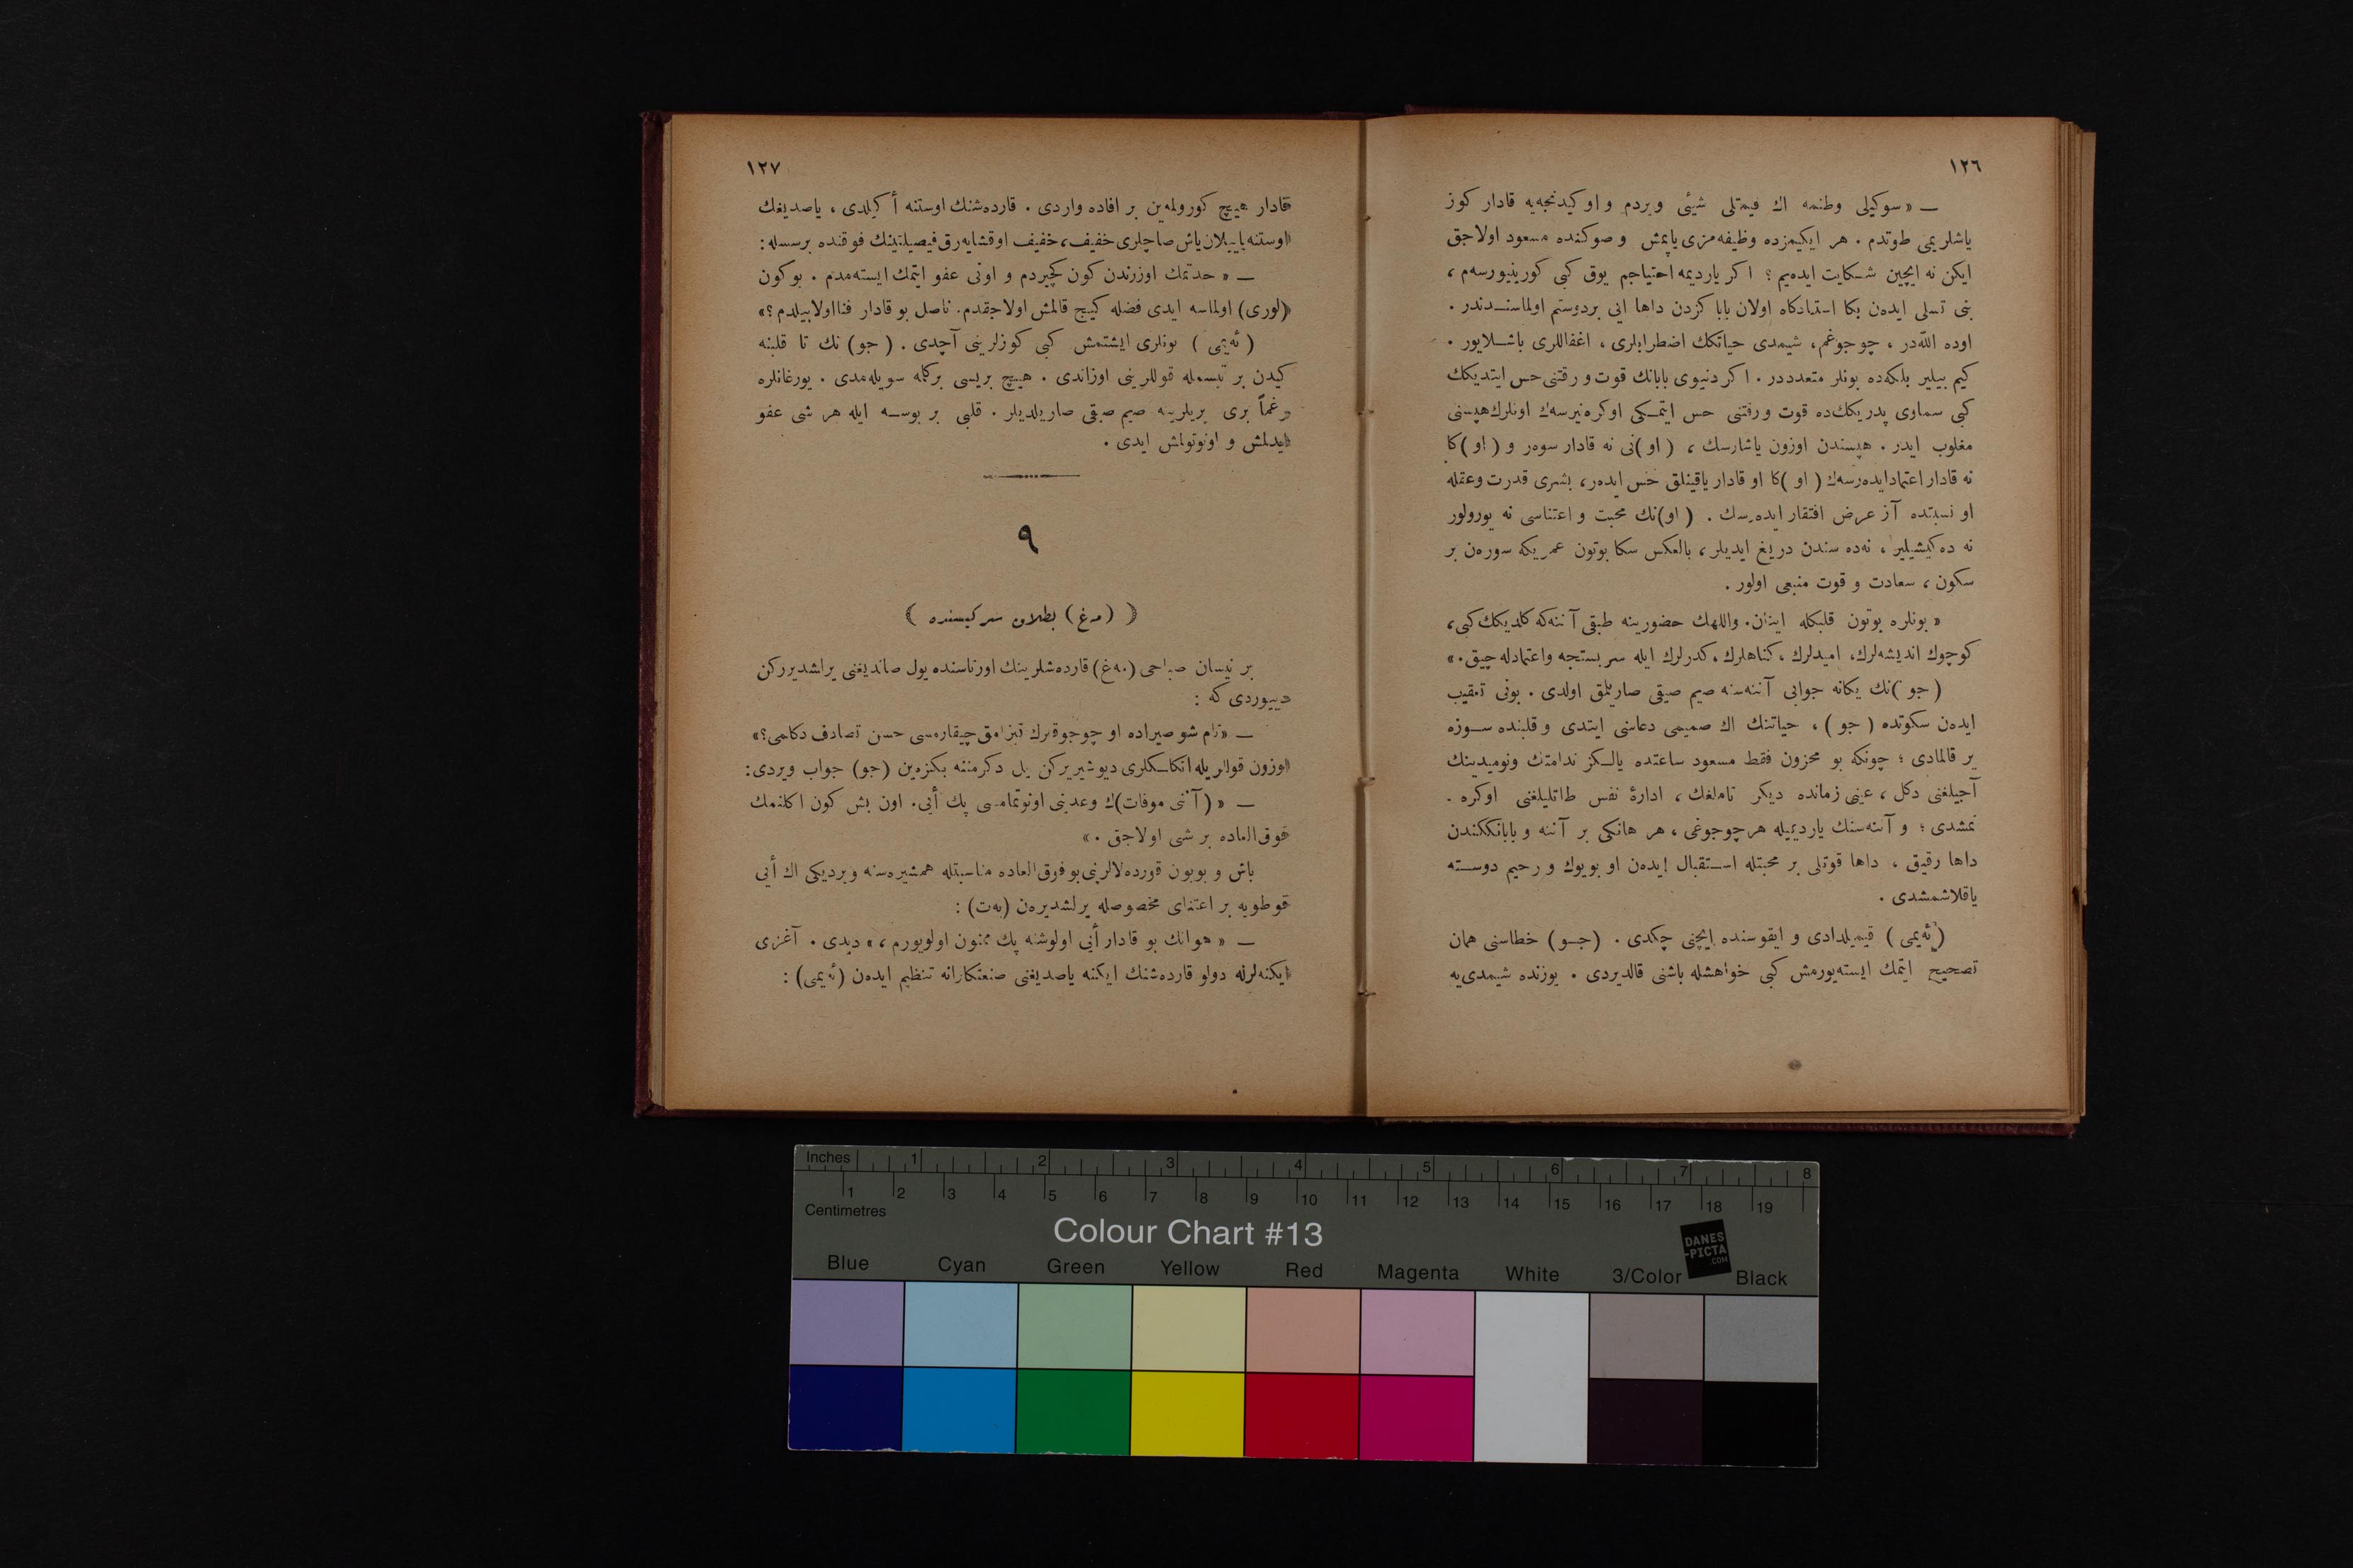 ١٢٦
— « سوكيلى وطنمه اك قيمتلى شيئى ويردم و او كيدنجه‌يه قادار كوز
ياشلريمى طوتدم . هر ايكيمزده وظيفه‌مزى ياپمش و صوكنده مسعود اولاجق
ايكن نه ايچين شكايت ايده‌يم ؟ اكر ياردیمه احتياجم يوق كبى كورينيورسه‌م ،
بنى تسلى ايده‌ن بكا استنادكاه اولان باباكزدن داها ايى بردوستم اولماسنددر .
اوده اللّه‌در ، چوجوغم ، شيمدى حياتكك اضطرابلرى ، اغفاللرى باشلايور .
كيم بيلير بلكه‌ده بونلر متعدددر . اكر دنيوى بابانك قوت و رقتنى حس ايتديكك
كبى سماوى پدريكك‌ده قوت و رقتنى حس ايتمكى اوكره‌نيرسه‌ك اونلرك هپسنى
مغلوب ايدر . هپسندن اوزون ياشارسك ، ( او )نى نه قادار سوه‌ر و ( او )كا
نه قادار اعتماد ايده‌رسه‌ك ( او )كا او قادار ياقينلق حس ايده‌ر ، بشرى قدرت و عقله
او نسبتده آز عرض افتقار ايده‌رسك . ( او)نك محبت و اعتناسى نه يورولور
نه ده‌كيشيلير ، نه‌ده سندن دريغ ايديلر ، بالعكس سكا بوتون عمريكه سوره‌ن بر
سكون ، سعادت و قوت منبعى اولور .
« بونلره بوتون قلبكله اينان . واللهك حضورينه طبقى آننه‌كه كلديكك كبى ،
كوچوك انديشه‌لرك ، اميدلرك ، كناهلرك ، كدرلرك ايله سربستجه واعتمادله چيق . »
( جو )نك يكانه جوابى آننه‌سنه صيم صيقى صارلمق اولدى . بونى تعقيب
ايده‌ن سكوتده ( جو ) ، حياتنك اك صميمى دعاسنى ايتدى و قلبنده سوزه
ير قالمادى ؛ چونكه بو محزون فقط مسعود ساعتده يالكز ندامتك ونوميدينك
آجيلغنى دكل ، عينى زمانده ديكر ناملغك ، ادارۀ نفس طاتليلغنى اوكره -
نمشدى ؛ و آننه‌سنك ياردیميله هر چوجوغى ، هر هانكى بر آننه و بابانككندن
داها رقيق ، داها قوتلى بر محبتله استقبال ايده‌ن او بويوك و رحيم دوسته
ياقلاشمشدى .
( ئه‌يمى ) قيميلدادى و ايقوسنده ايچنى چكدى . (جو) خطاسنى همان
تصحيح ايتمك ايسته‌يورمش كبى خواهشله باشنى قالديردى . يوزنده شيمدى‌يه
١٢٧
قادار هيچ كورولمه‌ين بر افاده واردى . قارده‌شنك اوستنه أكيلدى ، ياصديغك
اوستنه ياييلان ياش صاچلرى خفيف ، خفيف اوقشايه‌رق فيصيلتينك فوقنده بر سسله :
— « حدتمك اوزرندن كون كچيردم و اونى عفو ايتمك ايسته‌مدم . بوكون
(لورى) اولماسه ايدى فضله كيج قالمش اولاجقدم . ناصل بو قادار فنا اولابيلدم ؟ »
( ئه‌يمى ) بونلرى ايشتمش كبى كوزلرينى آچدى . ( جو ) نك تا قلبنه
كيدن بر تبسمله قوللرينى اوزاندى . هيچ بريسى بركله سويله‌مدى . يورغانلره
رغماً برى بريلرينه صيم صيقى صاريلديلر . قلبى بر بوسه ايله هر شى عفو
ايدلمش و اونوتولمش ايدى .
٩
﴿ ( مه‌غ ) بطلان سركيسنده ﴾
بر نيسان صباحى (مه‌غ) قارده‌شلرينك اورتاسنده يول صانديغنى يرلشديرركن
دييوردى كه :
— « تام شو صيراده او چوجوقلرك قيزامق چيقارمسى حسن تصادف دكلمى ؟ »
اوزون قوللريله اتكلكلرى ديوشيريركن يل دكرمننه بكزه‌ين (جو) جواب ويردى :
— « ( آننى موفات)ك وعدينى اونوتمامسى پك أيى . اون بش كون اكلنمك
فوق العاده بر شى اولاجق . »
باش و بويون قورده‌لالرينى بو فوق العاده مناسبتله همشيره‌سنه ويرديكى اك أيى
قوطويه بر اعتناى مخصوصله يرلشديره‌ن (به‌ت) :
— « هوانك بو قادار أيى اولوشنه پك ممنون اولويورم ، » ديدى . آغزى
ايكنه‌لرله دولو قارده‌شنك ايكنه ياصديغنى صنعتكارانه تنظيم ايده‌ن (ئه‌يمى) :
Inches 1 2 3 4 5 6 7 8
1 2 3 4 5 6 7 8 9 10 11 12 13 14 15 16 17 18 19
Centimetres
Colour Chart #13
DANES
-PICTA
.COM
Blue Cyan Green Yellow Red Magenta White 3/Color Black